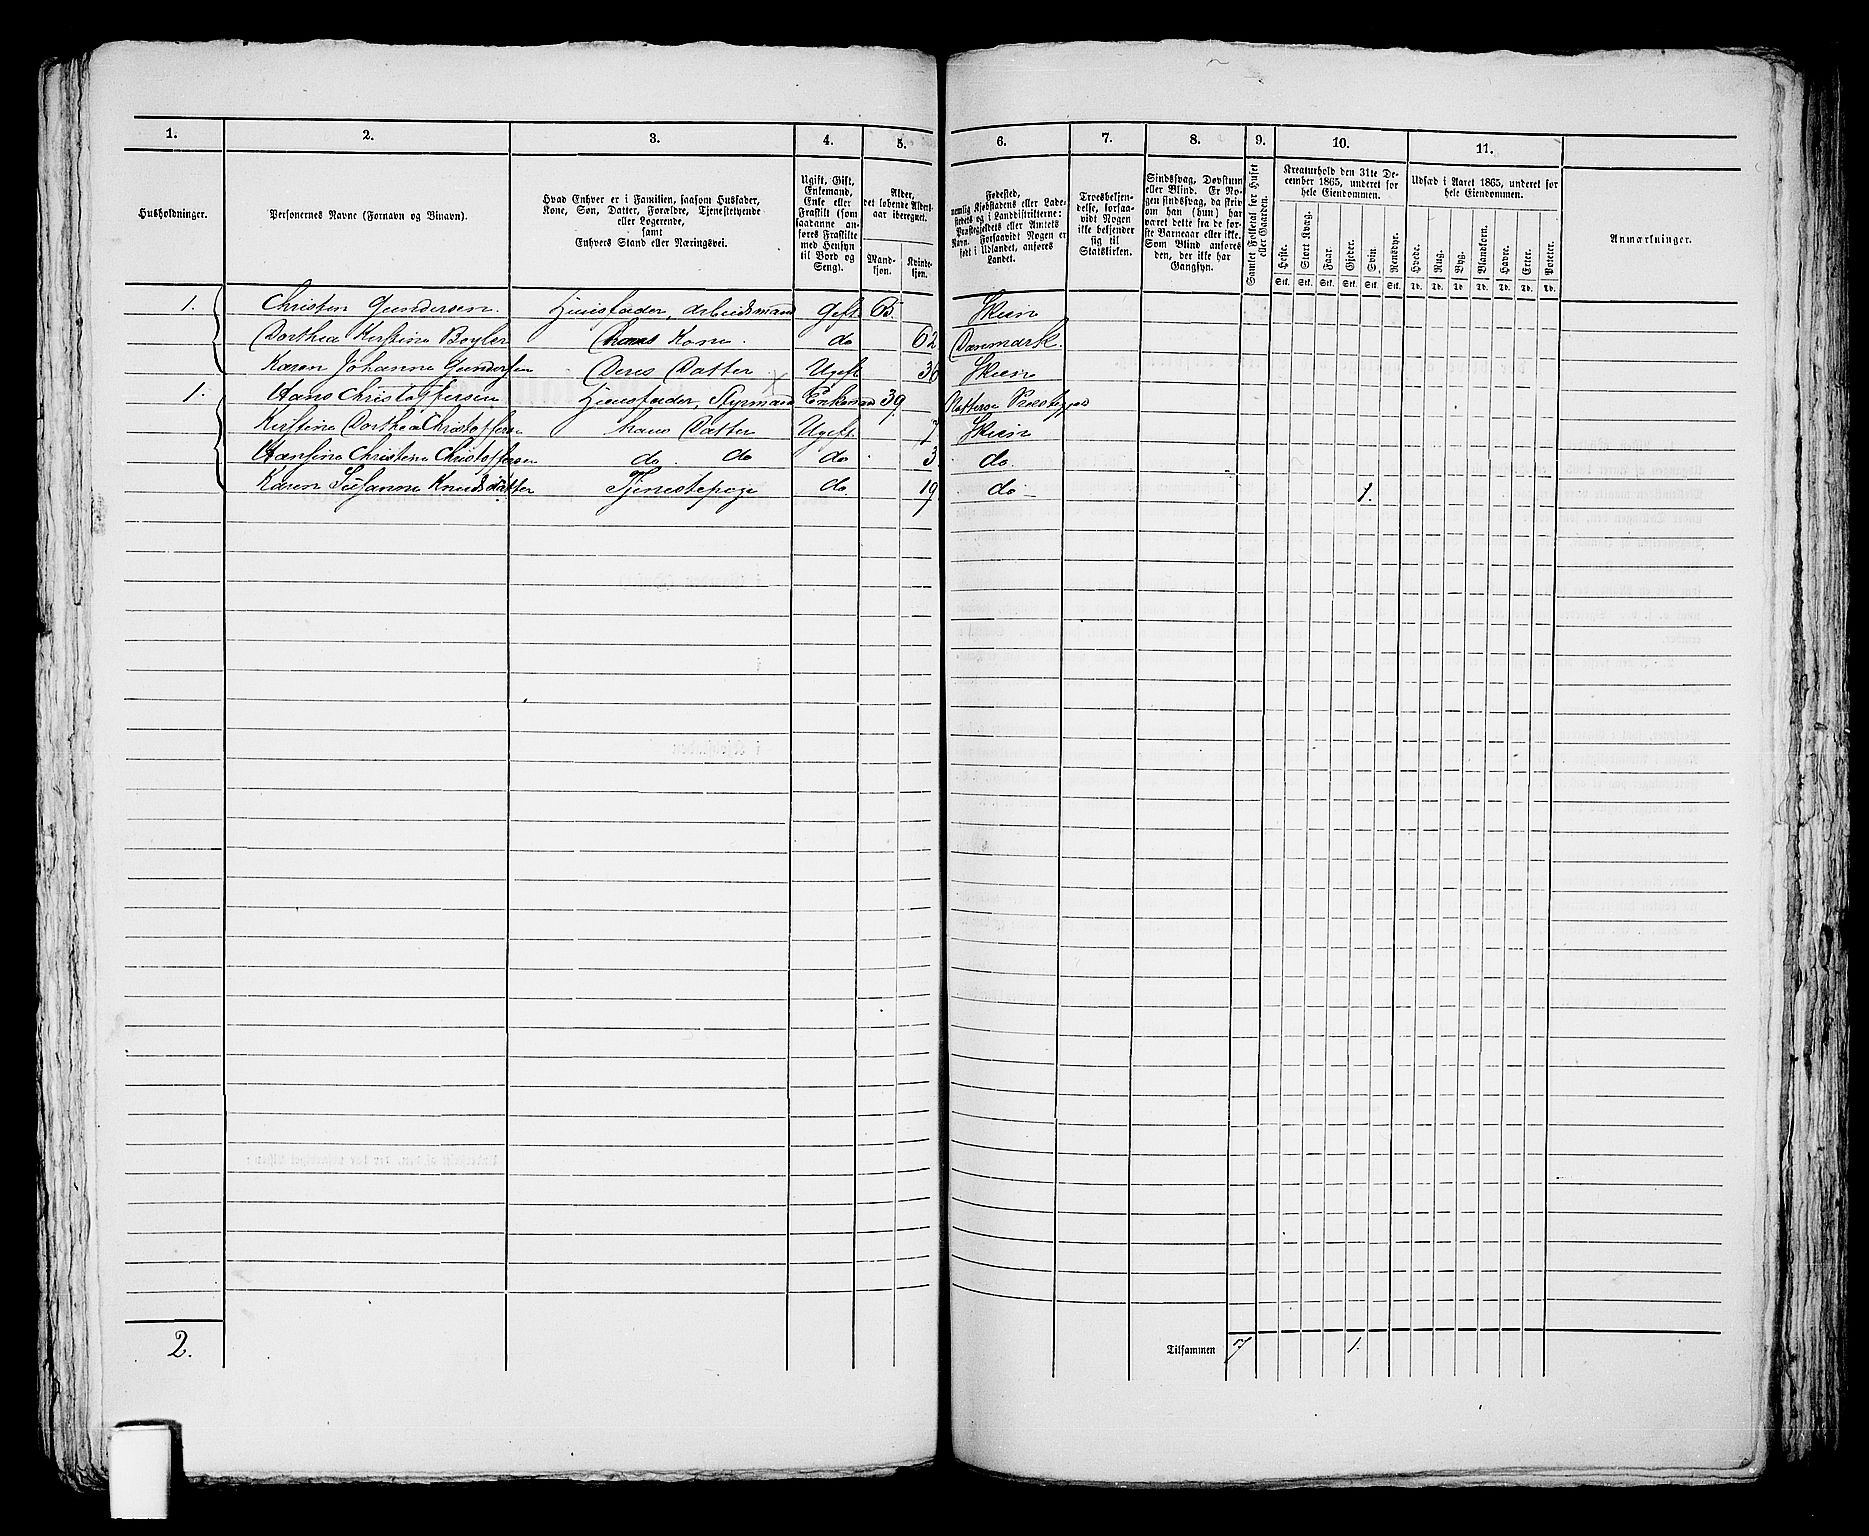 1. 2. 3. 4. 5. 6. 7. 8. 9. 10. 11.
Husholdninger.
Personernes Navne (Fornavn og Binavn).
Hvad Enhver er i Familien, saasom Husfader, Kone, Søn, Datter, Forældre, Tjenestetyende eller Logerende, samt Enhvers Stand eller Næringsvei.
Ugift, Gift, Enkemand, Enke eller Fraskilt (som saadanne anføres Fraskilte med Hensyn til Bord og Seng).
Alder, det løbende Aldersaar iberegnet.
Mandkjøn. Kvindekjøn.
Fødested, nemlig Kjøbstadens eller Ladestedets og i Landdistrikterne: Præstegjeldets eller Amtets Navn. Forsaavidt Nogen er født i Udlandet, anføres Landet.
Troesbekjendelse, forsaavidt Nogen ikke bekjender sig til Statskirken.
Sindssvag, Døvstum eller Blind. Er Nogen sindssvag, da skrives om han (hun) har været dette fra de første Barneaar eller ikke. Som Blind anføres den, der ikke har Gangsyn.
Samlet Folketal for Huset eller Gaarden.
Kreaturhold den 31te December 1865, underet for hele Eiendommen.
Heste. Stort Kvæg. Faar. Gjeder. Svin. Rensdyr.
Stk. Stk. Stk. Stk. Stk. Stk.
Udsæd i Aaret 1865, underet for hele Eiendommen.
Hvede. Rug. Byg. Blandkorn. Havre. Erter. Poteter.
Td. Td. Td. Td. Td. Td. Td.
Anmærkninger.
1. Christen Gundersen. Huusfader, Arbeidsmand Gift 65. Skien
Dorthea Kirstine Beyler Hans Kone. do 62 Danmark.
Karen Johanne Gundersen Deres Datter Ugift 36 Skien
1. Hans Christoffersen Huusfader, Styrmand Enkemand 39
Kirstine Dorthea Christoffersen hans Datter Ugift. 7 Skien
Hansine Christine Christoffersen do. do do 3. do.
Karen Susanne Knudsdatter Tjenestepige do. 19 do 1.
2. Tilsammen 7 1.